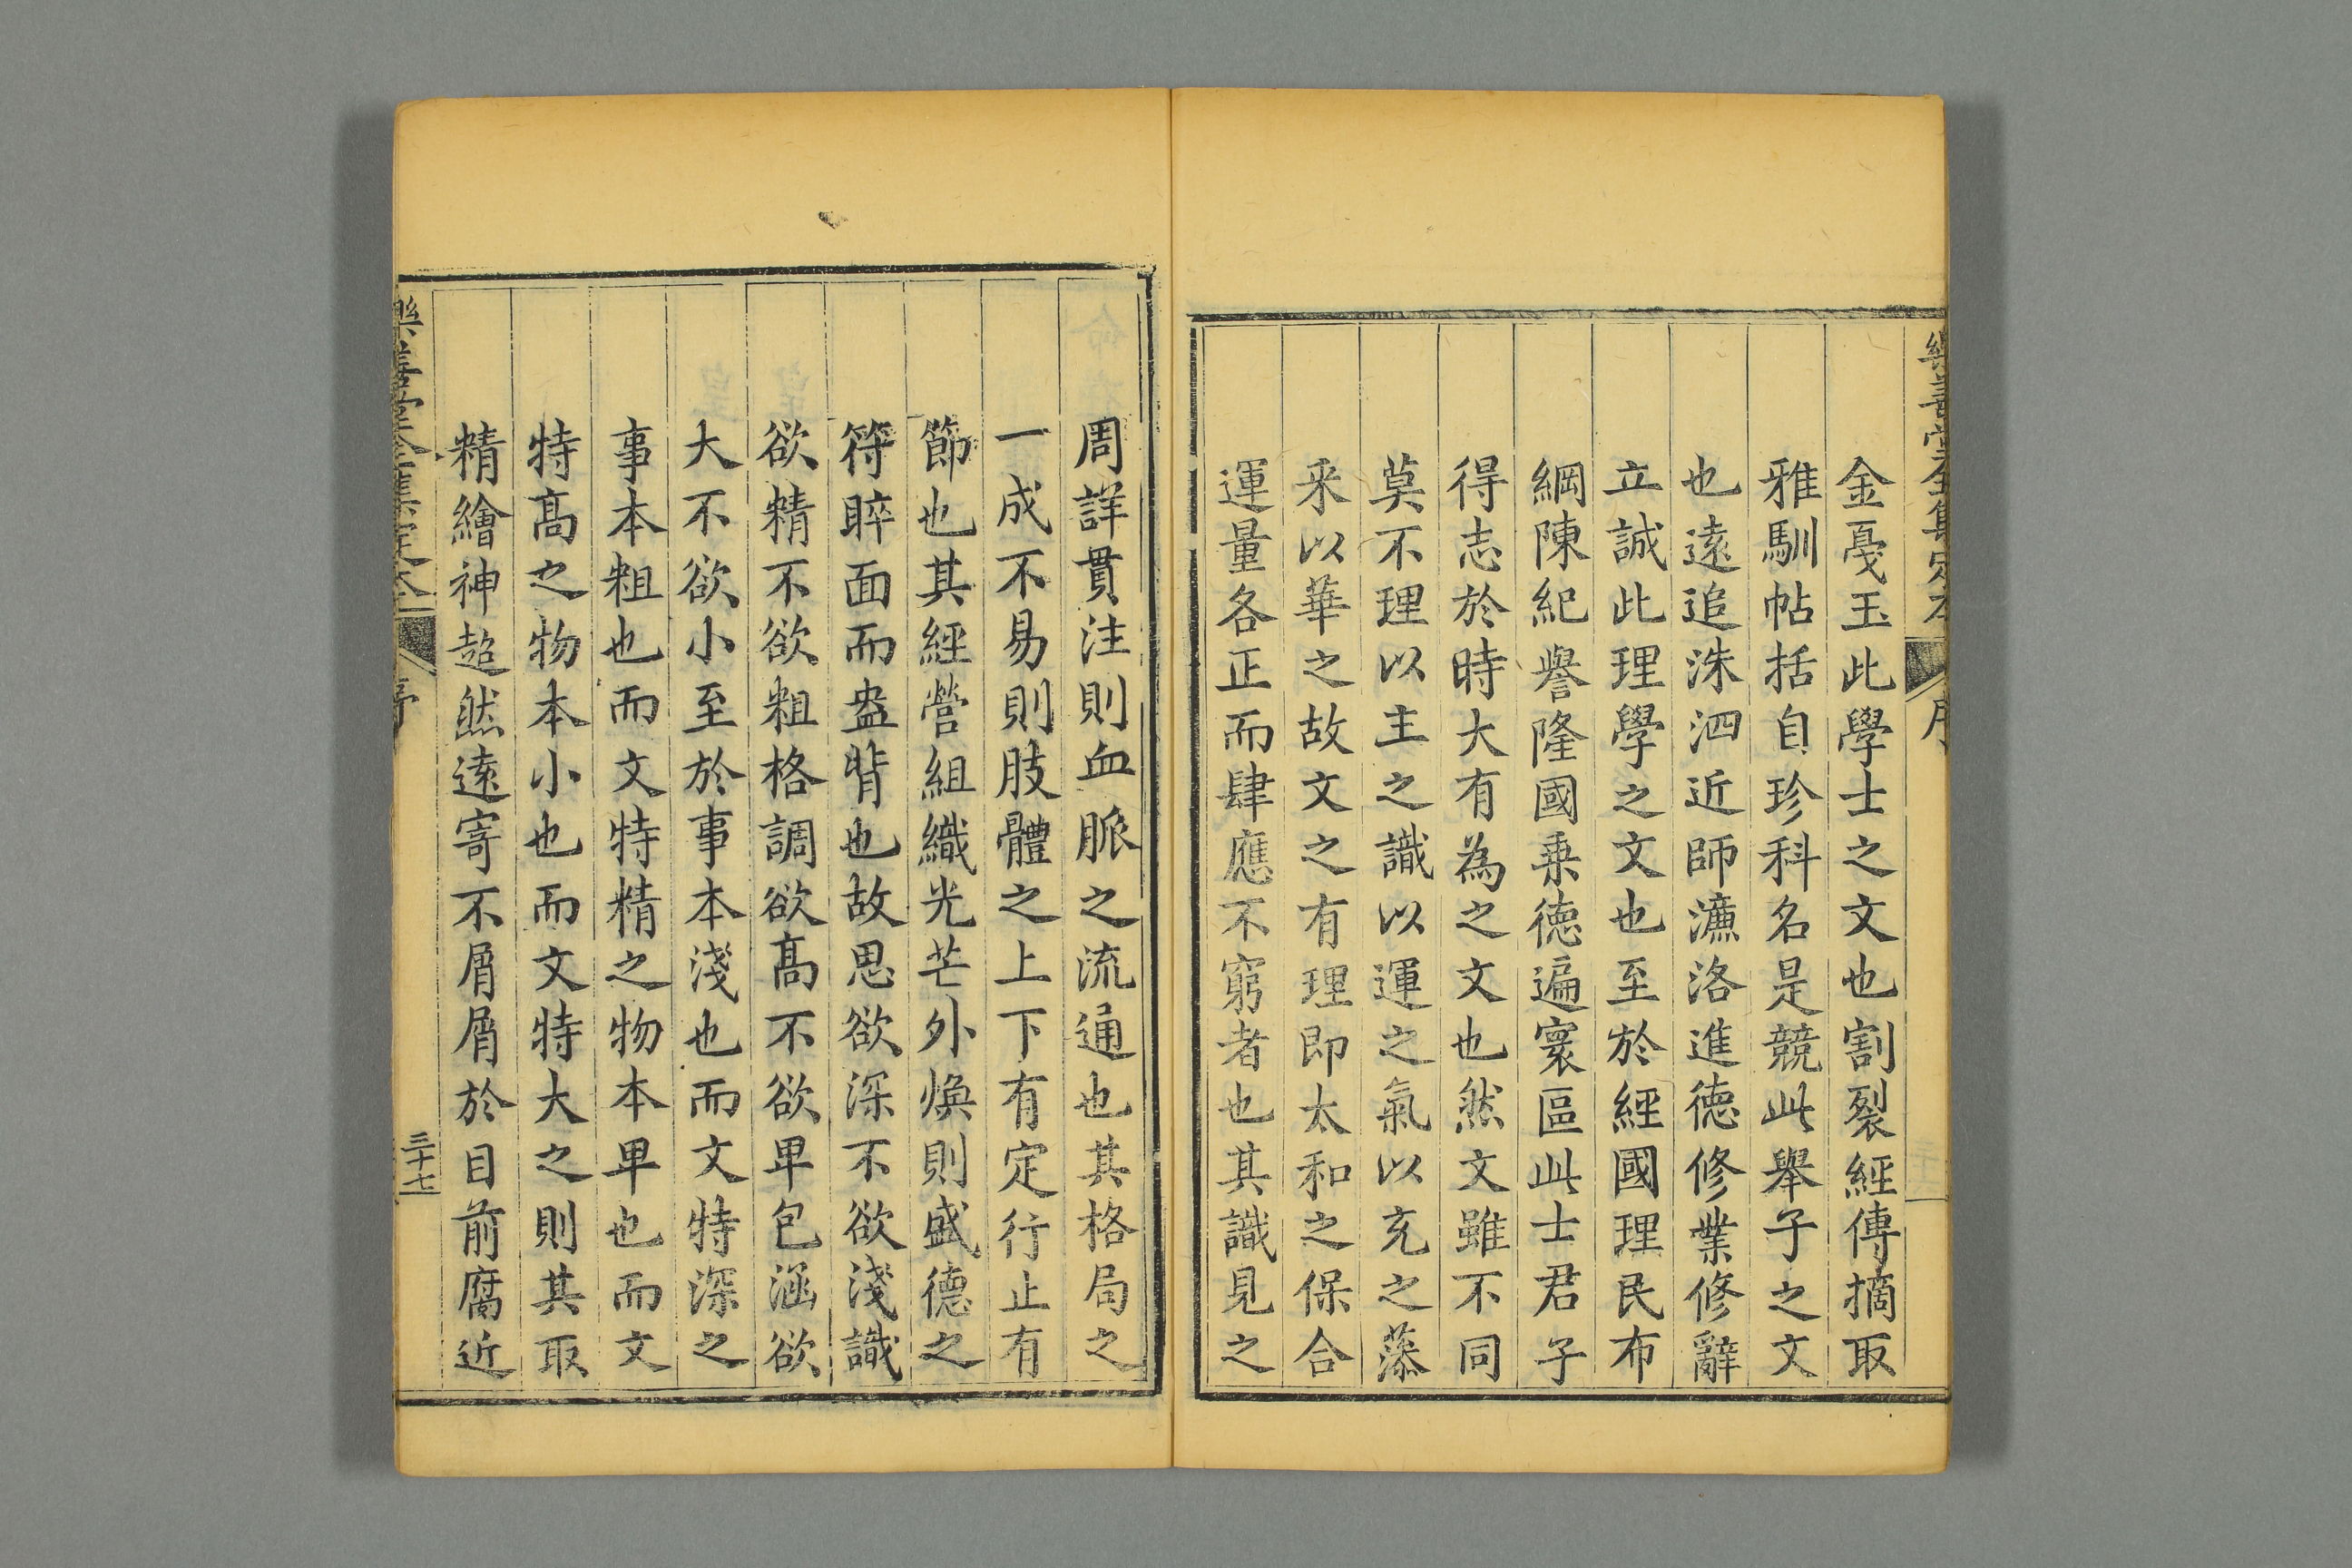 樂善堂全集定本
序
金戛玉此學士之文也割裂經傳摘取
雅馴帖括自珍科名是競此舉子之文
也遠追洙泗近師濂洛進德修業修辭
立誠此理學之文也至於經國理民布
綱陳紀譽隆國乗德遍寰區此士君子
得志於時大有為之文也然文雖不同
莫不理以主之識以運之氣以充之藻
采以華之故文之有理即太和之保合
運量各正而肆應不窮者也其識見之
周詳貫注則血脈之流通也其格局之
一成不易則肢體之上下有定行止有
節也其經營組織光芒外煥則盛德之
符睟面而盎背也故思欲深不欲淺識
欲精不欲粗格調欲髙不欲卑包涵欲
大不欲小至於事本淺也而文特深之
事本粗也而文特精之物本卑也而文
特髙之物本小也而文特大之則其取
精繪神超然遠寄不屑屑於目前腐近
樂善堂全集定本
序
三十七